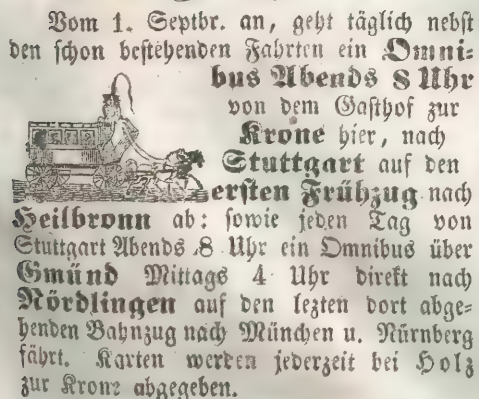 Vom 1. Septbr. an, geht täglich nebst
den schon bestehenden Fahrten ein Omni-
bus Abends 8 Uhr
von dem Gasthof zur
Krone hier, nach
Stuttgart auf den
ersten Frühzug nach
Heilbronn ab: sowie jeden Tag von
Stuttgart Abends 8 Uhr ein Omnibus über
Gmünd Mittags 4 Uhr direkt nach
Nördlingen auf den lezten dort abge-
henden Bahnzug nach München u. Nürnberg
fährt. Karten werden jederzeit bei Holz
zur Krone abgegeben.